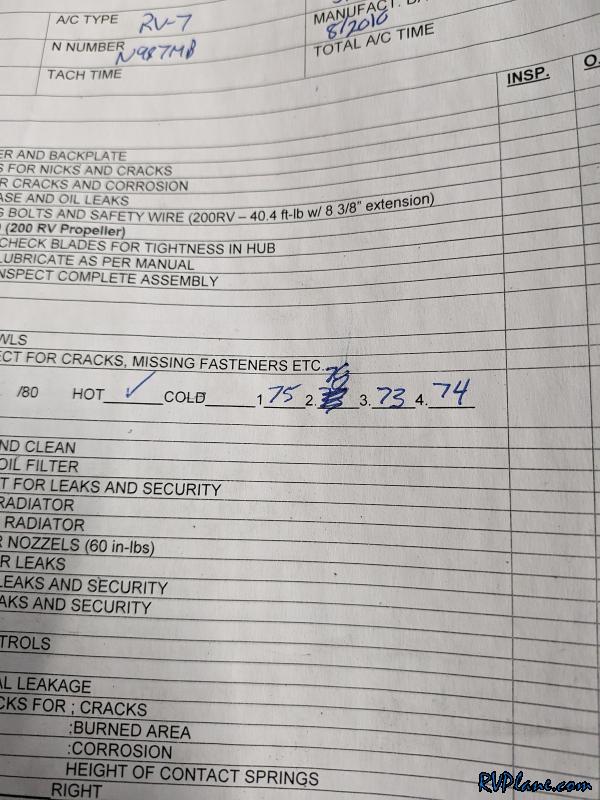 MANUFACT.
A/C TYPE RV-7 8/2010
N NUMBER N987MB TOTAL A/C TIME
TACH TIME
INSP. O.
ER AND BACKPLATE
S FOR NICKS AND CRACKS
R CRACKS AND CORROSION
ASE AND OIL LEAKS
G BOLTS AND SAFETY WIRE (200RV – 40.4 ft-lb w/ 8 3/8" extension)
(200 RV Propeller)
CHECK BLADES FOR TIGHTNESS IN HUB
LUBRICATE AS PER MANUAL
NSPECT COMPLETE ASSEMBLY
WLS
ECT FOR CRACKS, MISSING FASTENERS ETC.
/80 HOT ✓ COLD 1 75 2. 76 3. 73 4. 74
ND CLEAN
OIL FILTER
T FOR LEAKS AND SECURITY
RADIATOR
RADIATOR
R NOZZELS (60 in-lbs)
R LEAKS
LEAKS AND SECURITY
AKS AND SECURITY
TROLS
AL LEAKAGE
CKS FOR ; CRACKS
:BURNED AREA
:CORROSION
HEIGHT OF CONTACT SPRINGS
RIGHT
RVPlane.com